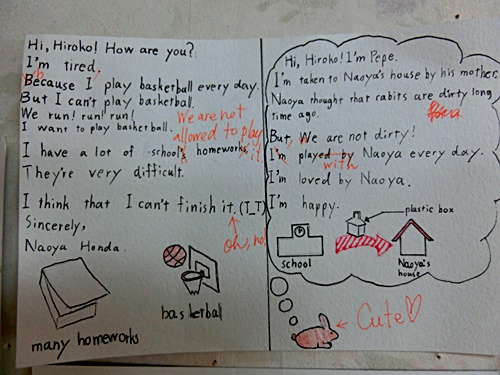 Hi, Hiroko! How are you?
I'm tired.
Because I play basketball every day.
But I can't play basketball.
We run! run! run!
I want to play basketball.
We are not
allowed to play
it.
I have a lot of school's homeworks.
They're very difficult.
I think that I can't finish it. (T_T)
oh, no!
Sincerely,
Naoya Honda.
many homeworks
basketball
Hi, Hiroko! I'm Pepe.
I'm taken to Naoya's house by his mother.
Naoya thought that rabits are dirty long
time ago.
But We are not dirty!
I'm played by Naoya every day.
with
I'm loved by Naoya.
I'm happy.
plastic box
school
Naoya's
house
Cute♡